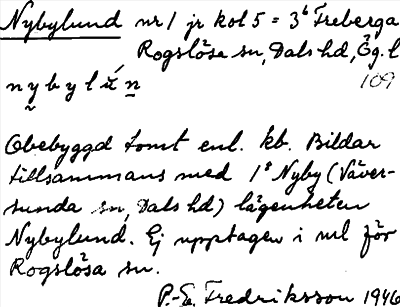 Nybylund nr 1 jr kol 5 = 3⁶ Freberga
Rogslösa sn, Dals hd, Ög. l
109
n y b y l ú n
Obebyggd tomt enl. kb. Bildar
tillsammans med 1⁸ Nyby (Väver-
sunda sn, Dals hd) lägenheten
Nybylund. Ej upptagen i ml för
Rogslösa sn.
P.-E. Fredriksson 1946